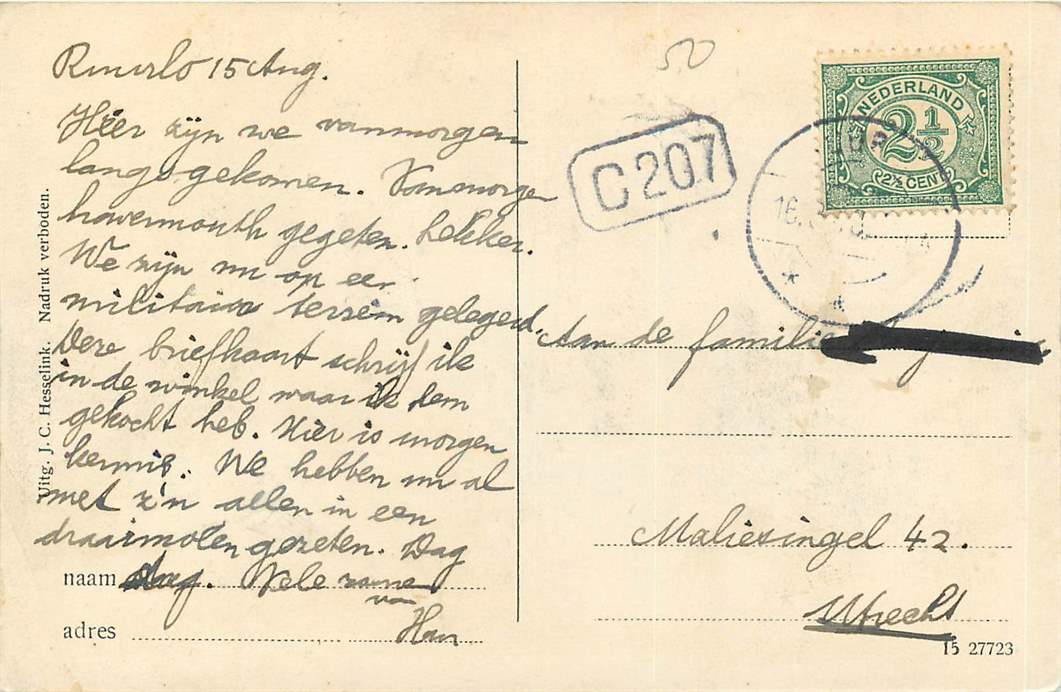 Ruurlo 15 Aug.
Hier zijn we vanmorgen
langs gekomen. Vanmorgen
havermouth gegeten. Lekker.
We zijn nu op een
militair terrein gelegerd.
Deze briefkaart schrijf ik
in de winkel waar ik hem
gekocht heb. Hier is morgen
kermis. We hebben nu al
met z'n allen in een
draaimolen gezeten. Dag
naam dag. Vele
van
adres Han
Uitg. J. C. Hesselink. Nadruk verboden.
50
C 207
NEDERLAND
2 1/2
2½ CENT
16
Aan de familie
Maliesingel 42.
Utrecht
15 27723